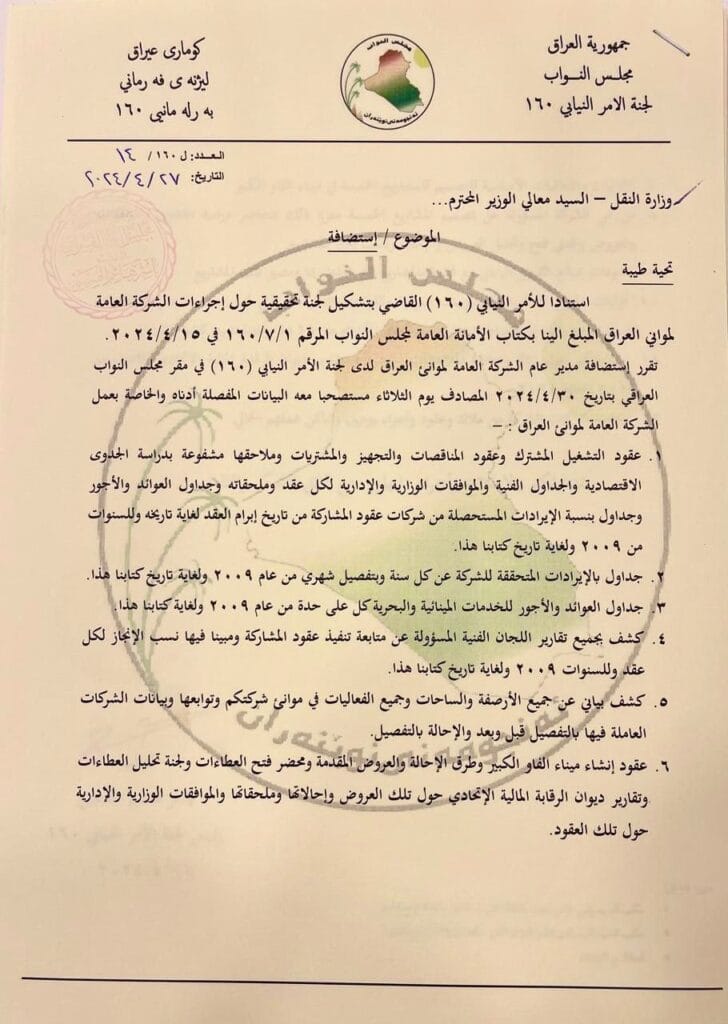 جمهورية العراق
مجلس النواب
لجنة الامر النيابي ١٦٠
كوماری عيراق
ليژنه ی فه رماني
به رله مانيی ١٦٠
مجلس النواب
العدد: ل ١٦٠/ ١٤
التاريخ: ٢٠٢٤/٤/٢٧
وزارة النقل – السيد معالي الوزير المحترم...
الموضوع / إستضافة
تحية طيبة
استنادا للأمر النيابي (١٦٠) القاضي بتشكيل لجنة تحقيقية حول إجراءات الشركة العامة
لمواني العراق المبلغ الينا بكتاب الأمانة العامة لمجلس النواب المرقم ١٦٠/٧/١ في ٢٠٢٤/٤/١٥ .
تقرر إستضافة مدير عام الشركة العامة لموانئ العراق لدى لجنة الأمر النيابي (١٦٠) في مقر مجلس النواب
العراقي بتاريخ ٢٠٢٤/٤/٣٠ المصادف يوم الثلاثاء مستصحبا معه البيانات المفصلة أدناه والخاصة بعمل
الشركة العامة لموانئ العراق : –
١. عقود التشغيل المشترك وعقود المناقصات والتجهيز والمشتريات وملاحقها مشفوعة بدراسة الجدوى
الاقتصادية والجداول الفنية والموافقات الوزارية والإدارية لكل عقد وملحقاته وجداول العوائد والأجور
وجداول بنسبة الإيرادات المستحصلة من شركات عقود المشاركة من تاريخ إبرام العقد لغاية تاريخه وللسنوات
من ٢٠٠٩ ولغاية تاريخ كتابنا هذا.
٢. جداول بالإيرادات المتحققة للشركة عن كل سنة وبتفصيل شهري من عام ٢٠٠٩ ولغاية تاريخ كتابنا هذا.
٣. جداول العوائد والأجور للخدمات المينائية والبحرية كل على حدة من عام ٢٠٠٩ ولغاية كتابنا هذا.
٤. كشف بجميع تقارير اللجان الفنية المسؤولة عن متابعة تنفيذ عقود المشاركة ومبينا فيها نسب الإنجاز لكل
عقد وللسنوات ٢٠٠٩ ولغاية تاريخ كتابنا هذا.
٥. كشف بياني عن جميع الأرصفة والساحات وجميع الفعاليات في موانئ شركتكم وتوابعها وبيانات الشركات
العاملة فيها بالتفصيل قبل وبعد والإحالة بالتفصيل.
٦. عقود إنشاء ميناء الفاو الكبير وطرق الإحالة والعروض المقدمة ومحضر فتح العطاءات ولجنة تحليل العطاءات
وتقارير ديوان الرقابة المالية الإتحادي حول تلك العروض وإحالاتها وملحقاتها والموافقات الوزارية والإدارية
حول تلك العقود.